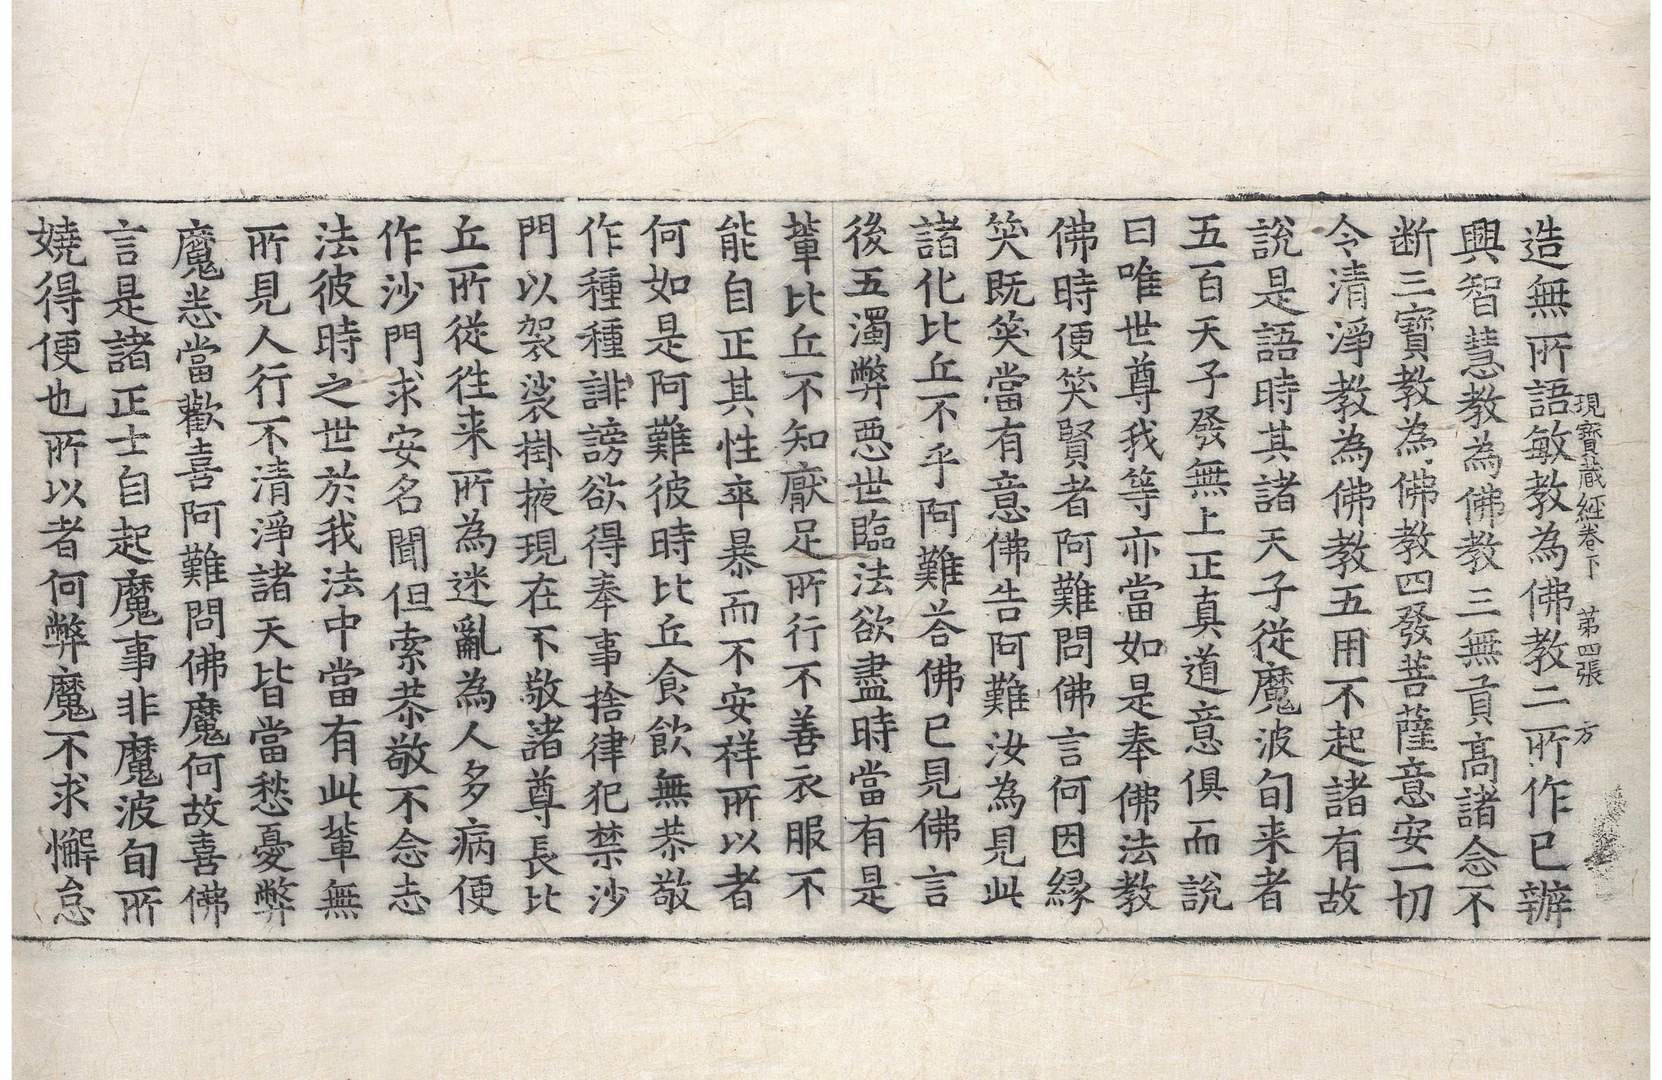 現寶藏經卷下　第四張　方
造無所語敏教為佛教二所作已辦
興智慧教為佛教三無貢高諸念不
断三寶教為佛教四發菩薩意安一切
令清淨教為佛教五用不起諸有故
說是語時其諸天子從魔波旬来者
五百天子發無上正真道意俱而說
曰唯世尊我等亦當如是奉佛法教
佛時便笑賢者阿難問佛言何因緣
笑既笑當有意佛告阿難汝為見此
諸化比丘不乎阿難荅佛已見佛言
後五濁弊惡世臨法欲盡時當有是
輩比丘不知猒足所行不善衣服不
能自正其性卒暴而不安祥所以者
何如是阿難彼時比丘食飲無恭敬
作種種誹謗欲得奉事捨律犯禁沙
門以袈裟掛掖現在不敬諸尊長比
丘所從往来所為迷亂為人多病便
作沙門求安名聞但索恭敬不念志
法彼時之世於我法中當有此輩無
所見人行不清淨諸天皆當愁憂弊
魔恙當歡喜阿難問佛魔何故喜佛
言是諸正士自起魔事非魔波旬所
嬈得便也所以者何弊魔不求懈怠